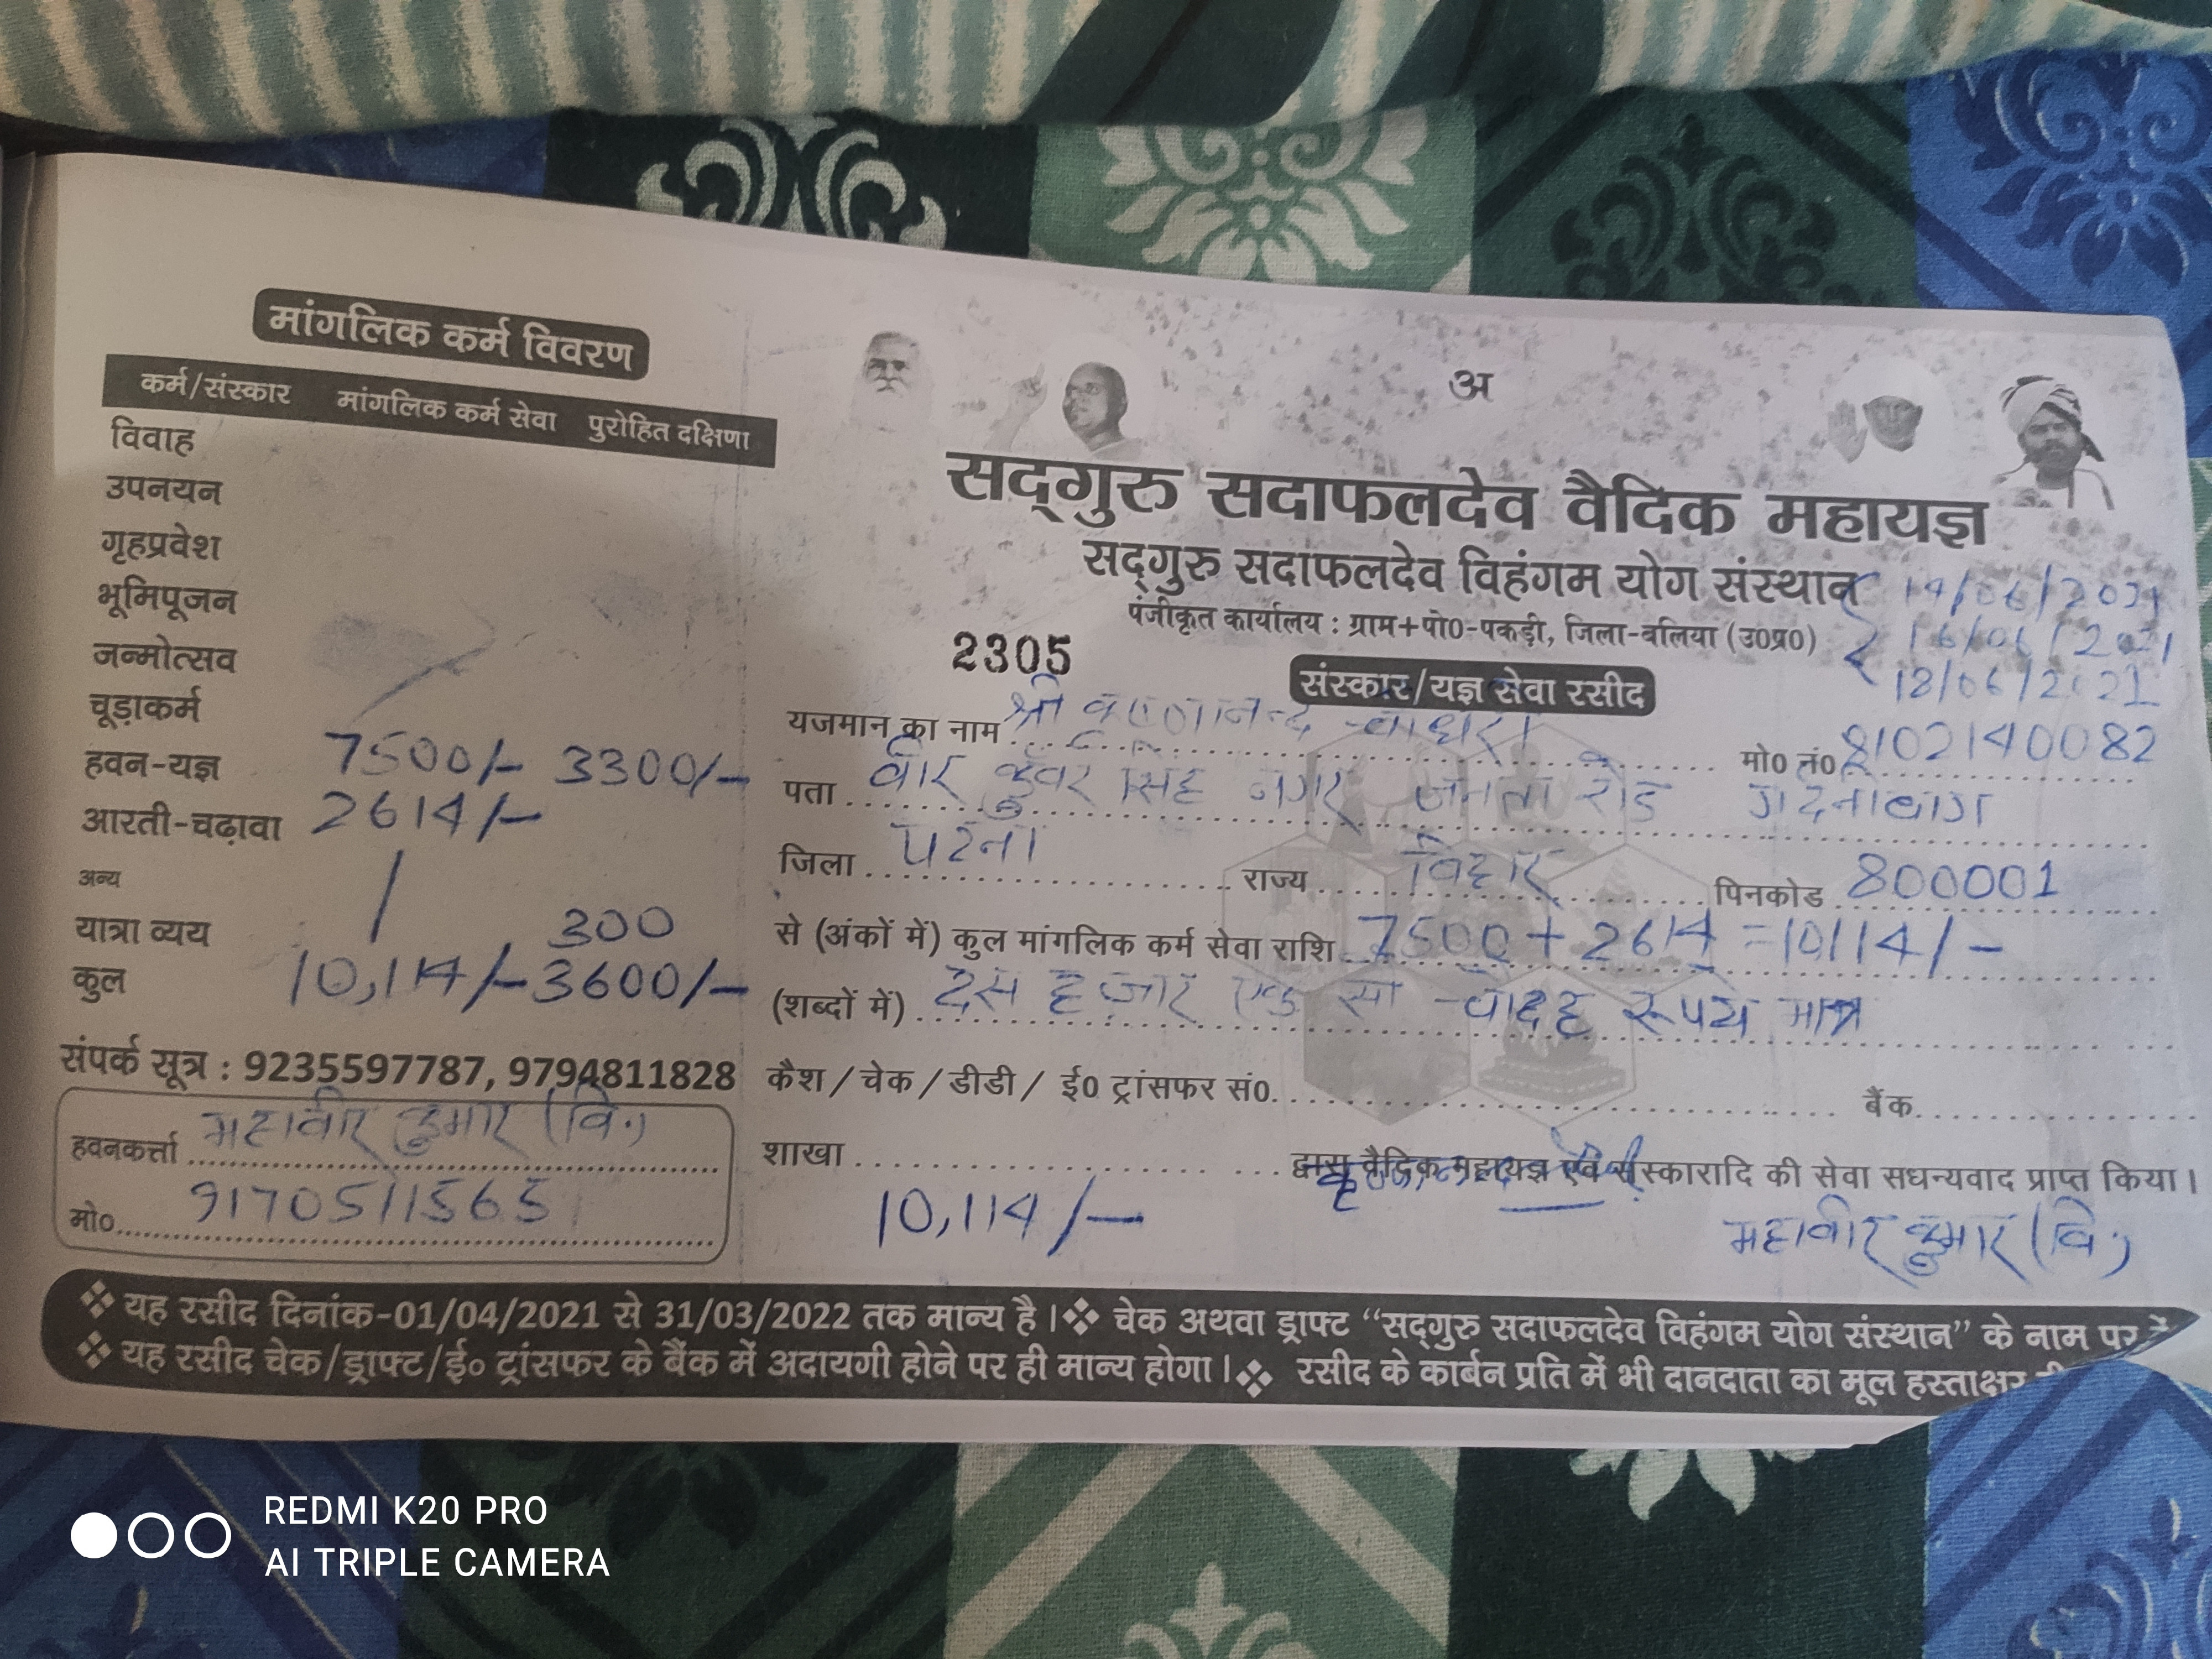 मांगलिक कर्म विवरण
कर्म/संस्कार मांगलिक कर्म सेवा पुरोहित दक्षिणा
विवाह
उपनयन
गृहप्रवेश
भूमिपूजन
जन्मोत्सव
चूड़ाकर्म
हवन-यज्ञ 7500/- 3300/-
आरती-चढ़ावा 2614/-
अन्य
यात्रा व्यय 300
कुल 10,114/- 3600/-
संपर्क सूत्र : 9235597787, 9794811828
हवनकर्त्ता महावीर कुमार (वि.)
मो० 9170511565
अ
सद्गुरु सदाफलदेव वैदिक महायज्ञ
सद्गुरु सदाफलदेव विहंगम योग संस्थान
14/06/2021
पंजीकृत कार्यालय : ग्राम+पो०-पकड़ी, जिला-बलिया (उ०प्र०)
16/06/2021
18/06/2021
2305
संस्कार/यज्ञ सेवा रसीद
यजमान का नाम श्री कृष्णानन्द चौधरी मो० नं० 8102140082
पता वीर कुंवर सिंह नगर जनता रोड गर्दनीबाग
जिला पटना राज्य बिहार पिनकोड 800001
से (अंकों में) कुल मांगलिक कर्म सेवा राशि 7500+2614=10114/-
(शब्दों में) दस हजार एक सौ चौदह रूपये मात्र
कैश/चेक/डीडी/ ई० ट्रांसफर सं० बैंक
शाखा द्वारा वैदिक महायज्ञ एवं संस्कारादि की सेवा सधन्यवाद प्राप्त किया।
10,114/- महावीर कुमार (वि.)
❖ यह रसीद दिनांक-01/04/2021 से 31/03/2022 तक मान्य है। ❖ चेक अथवा ड्राफ्ट “सद्गुरु सदाफलदेव विहंगम योग संस्थान” के नाम पर
❖ यह रसीद चेक/ड्राफ्ट/ई० ट्रांसफर के बैंक में अदायगी होने पर ही मान्य होगा। ❖ रसीद के कार्बन प्रति में भी दानदाता का मूल हस्ताक्षर
REDMI K20 PRO
AI TRIPLE CAMERA